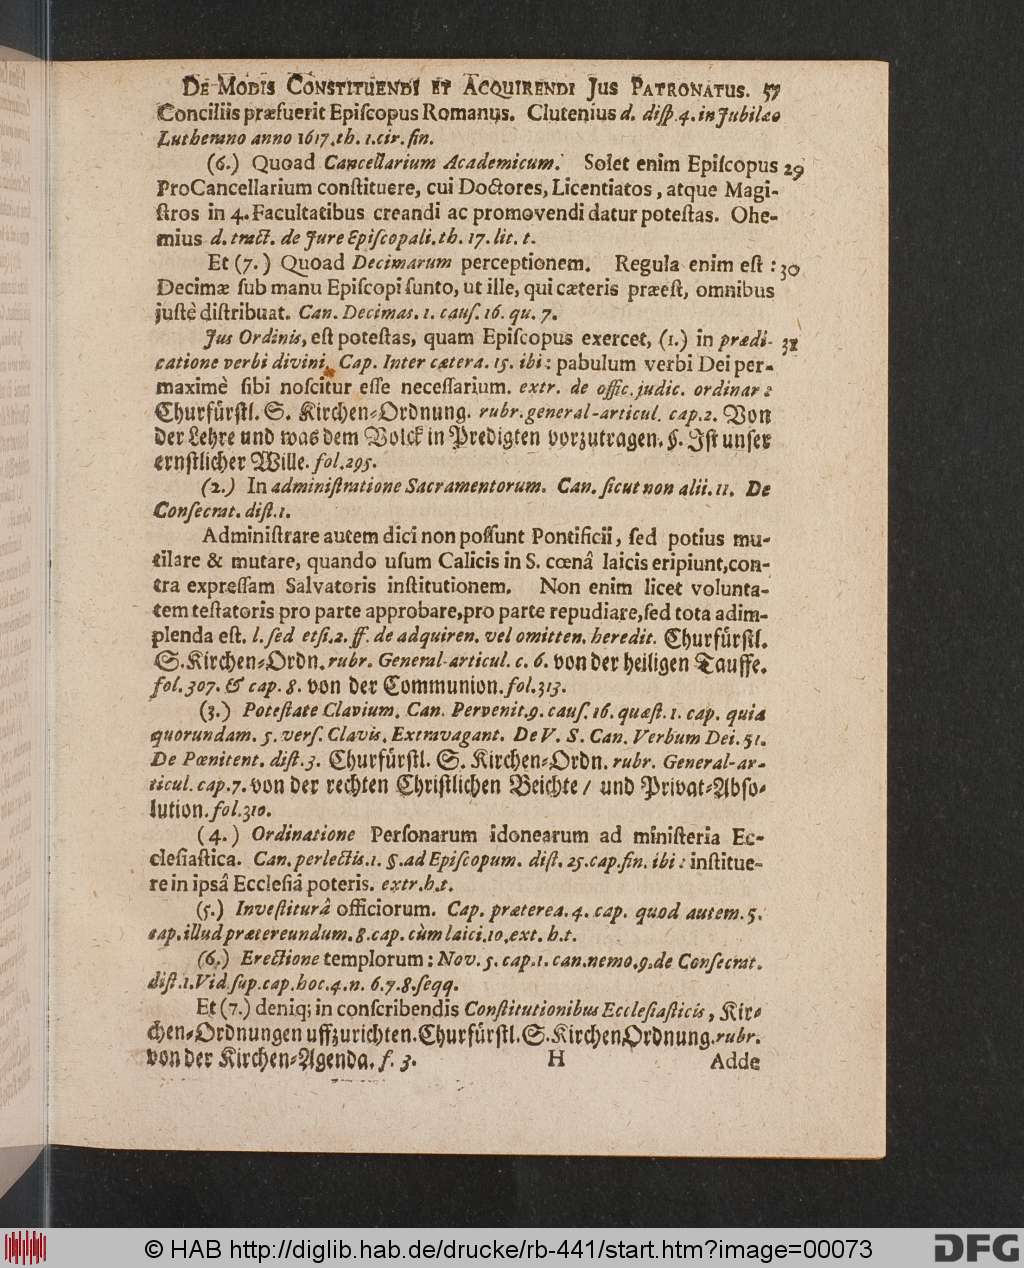 DE MODIS CONSTITUENDI ET ACQUIRENDI JUS PATRONATUS. 57
Conciliis præfuerit Epiſcopus Romanus. Clutenius d. diſp. 4. in Jubilæo
Lutherano anno 1617. th. 1. cir. fin.
(6.) Quoad Cancellarium Academicum. Solet enim Epiſcopus 29
ProCancellarium conſtituere, cui Doctores, Licentiatos, atque Magi-
ſtros in 4. Facultatibus creandi ac promovendi datur poteſtas. Ohe-
mius d. tract. de Jure Epiſcopali. th. 17. lit. t.
Et (7.) Quoad Decimarum perceptionem. Regula enim eſt: 30
Decimæ ſub manu Epiſcopi ſunto, ut ille, qui cæteris præeſt, omnibus
juſtè diſtribuat. Can. Decimas. 1. cauſ. 16. qu. 7.
Jus Ordinis, eſt poteſtas, quam Epiſcopus exercet, (1.) in prædi- 31
catione verbi divini, Cap. Inter cætera. 15. ibi: pabulum verbi Dei per-
maximè ſibi noſcitur eſſe neceſſarium. extr. de offic. judic. ordinar:
Churfürſtl. S. Kirchen-Ordnung. rubr. general-articul. cap. 2. Von
der Lehre und was dem Volck in Predigten vorzutragen. §. Iſt unſer
ernſtlicher Wille. fol. 295.
(2.) In adminiſtratione Sacramentorum. Can. ſicut non alii. 11. De
Conſecrat. diſt. 1.
Adminiſtrare autem dici non poſſunt Pontificii, ſed potius mu-
tilare & mutare, quando uſum Calicis in S. cœnâ laicis eripiunt, con-
tra expreſſam Salvatoris inſtitutionem. Non enim licet volunta-
tem teſtatoris pro parte approbare, pro parte repudiare, ſed tota adim-
plenda eſt. l. ſed etſi. 2. ff. de adquiren. vel omitten. heredit. Churfürſtl.
S. Kirchen-Ordn. rubr. General-articul. c. 6. von der heiligen Tauffe.
fol. 307. & cap. 8. von der Communion. fol. 313.
(3.) Poteſtate Clavium. Can. Pervenit. 9. cauſ. 16. quæſt. 1. cap. quia
quorundam. 5. verſ. Clavis. Extravagant. De V. S. Can. Verbum Dei. 51.
De Pœnitent. diſt. 3. Churfürſtl. S. Kirchen-Ordn. rubr. General-ar-
ticul. cap. 7. von der rechten Chriſtlichen Beichte / und Privat-Abſo-
lution. fol. 310.
(4.) Ordinatione Perſonarum idonearum ad miniſteria Ec-
cleſiaſtica. Can. perlectis. 1. §. ad Epiſcopum. diſt. 25. cap. fin. ibi: inſtitue-
re in ipsâ Eccleſiâ poteris. extr. h. t.
(5.) Inveſtiturâ officiorum. Cap. præterea. 4. cap. quod autem. 5.
cap. illud prætereundum. 8. cap. cùm laici. 10. ext. h. t.
(6.) Erectione templorum: Nov. 5. cap. 1. can. nemo. 9. de Conſecrat.
diſt. 1. Vid. ſup. cap. hoc. 4. n. 6. 7. 8. ſeqq.
Et (7.) deniq; in conſcribendis Conſtitutionibus Eccleſiaſticis, Kir-
chen-Ordnungen uffzurichten. Churfürſtl. S. KirchenOrdnung. rubr.
von der Kirchen-Agenda. f. 3. H Adde
© HAB http://diglib.hab.de/drucke/rb-441/start.htm?image=00073 DFG